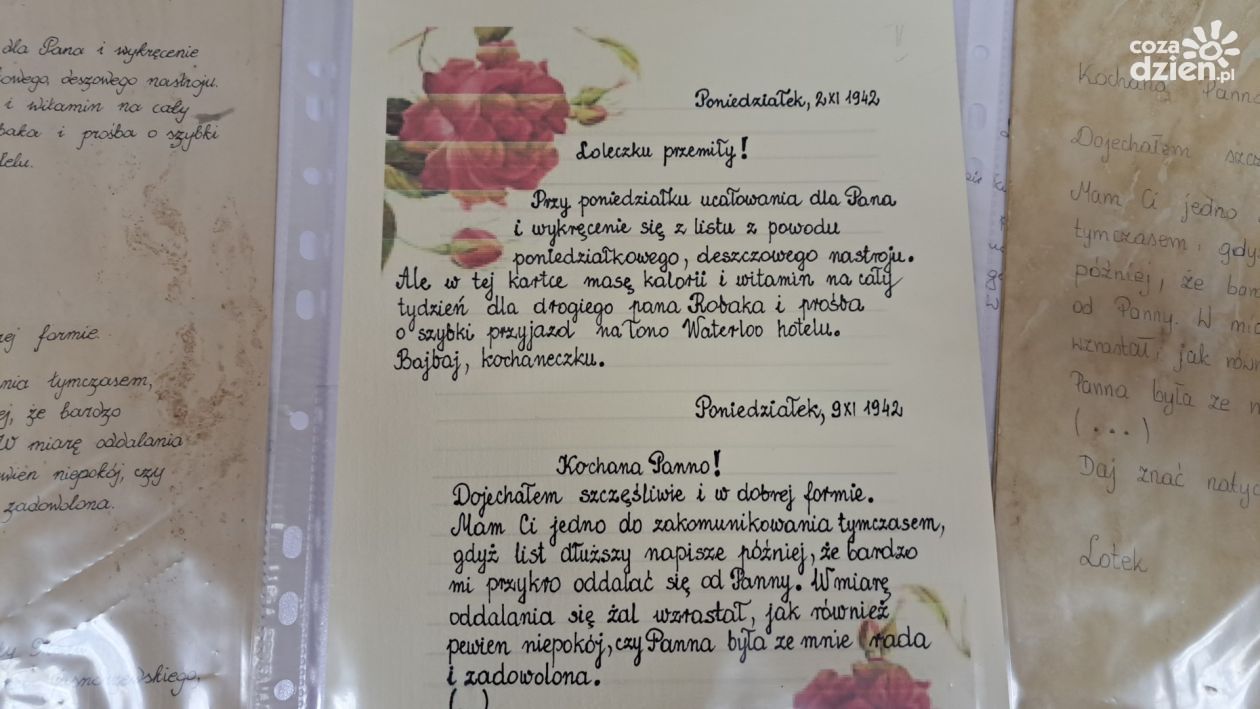 dla Pana i wykręcenie
owego, deszowego nastroju.
i witamin na cały
baka i prośba o szybki
elu.
ej formie.
nia tymczasem,
ej, że bardzo
W miarę oddalania
wien niepokój, czy
zadowolona.
Poniedziałek, 2 XI 1942
Loleczku przemiły!
Przy poniedziałku ucałowania dla Pana
i wykręcenie się z listu z powodu
poniedziałkowego, deszczowego nastroju.
Ale w tej kartce masę kalorii i witamin na cały
tydzień dla drogiego pana Robaka i prośba
o szybki przyjazd na łono Waterloo hotelu.
Bajbaj, kochaneczku.
Poniedziałek, 9 XI 1942
Kochana Panno!
Dojechałem szczęśliwie i w dobrej formie.
Mam Ci jedno do zakomunikowania tymczasem,
gdyż list dłuższy napisze później, że bardzo
mi przykro oddalać się od Panny. W miarę
oddalania się żal wzrastał, jak również
pewien niepokój, czy Panna była ze mnie rada
i zadowolona.
( )
coza
dzień.pl
Kochana Panno
Dojechałem szcz
Mam Ci jedno
tymczasem, gdy
później, że bar
od Panny. W mia
wzrastał, jak równ
Panna była ze m
(...)
Daj znać natyc
Lotek